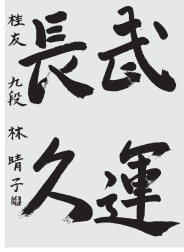 武運
長久
桂友 九段 林 晴子